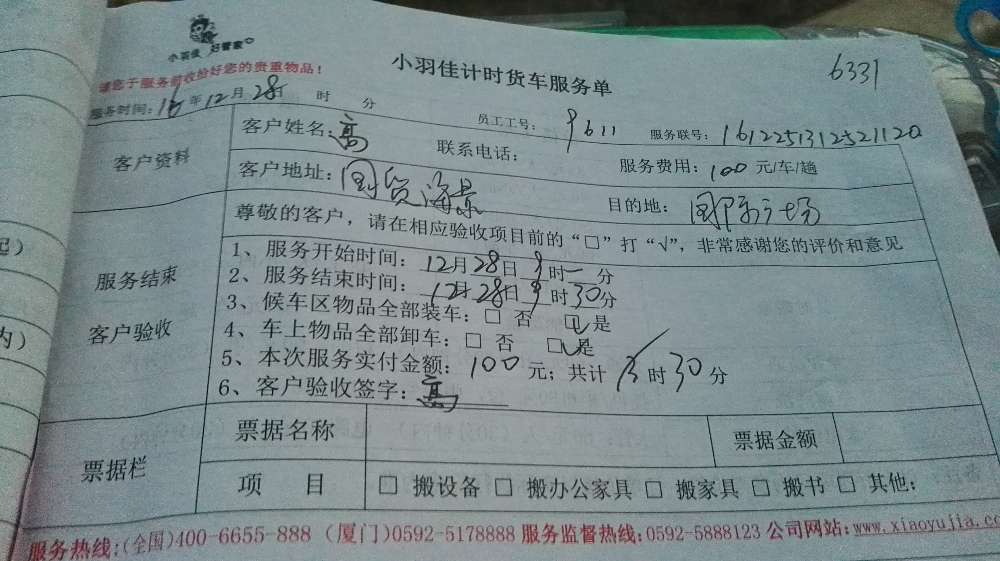 小羽佳 好管家
小羽佳计时货车服务单
6331
请您于服务前收拾好您的贵重物品！
服务时间：16年12月28日 时 分
员工工号：9611 服务联号：1612251312521120
客户资料
客户姓名：高 联系电话： 服务费用：100元/车/趟
客户地址：国贸海景 目的地：
尊敬的客户，请在相应验收项目前的“□”打“√”，非常感谢您的评价和意见
服务结束
客户验收
1、服务开始时间：12月28日9时一分
2、服务结束时间：12月28日9时30分
3、候车区物品全部装车：□ 否 ☑是
4、车上物品全部卸车：□ 否 ☑是
5、本次服务实付金额：100元；共计 时30分
6、客户验收签字：高
票据栏
票据名称 票据金额
项 目 □ 搬设备 □ 搬办公家具 □ 搬家具 □ 搬书 □ 其他：
服务热线：(全国)400-6655-888 (厦门)0592-5178888 服务监督热线：0592-5888123 公司网站：www.xiaoyujia.co
起)
内)